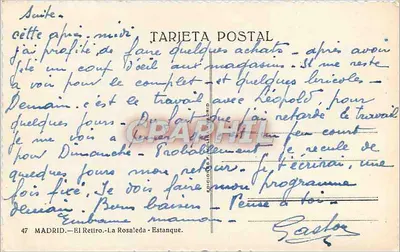 Suite -
TARJETA POSTAL
cette après-midi
j'ai profité de faire quelques achats - après avoir
jeté un coup d'œil aux magasins. Il me reste
à voir pour le complet - et quelques bricoles -
Demain c'est le travail avec Léopold, pour
quelques jours. Du fait que j'ai retardé le travail
je me vois un peu court
pour Dimanche - Probablement je recule de
quelques jours mon retour. Je t'écrirai, une
fois fixé. Je dois faire mon programme
demain. Bons baisers - Pense à toi -
Embrasse maman - Gaston
47 MADRID.-El Retiro.-La Rosaleda - Estanque.
CPAPHIL